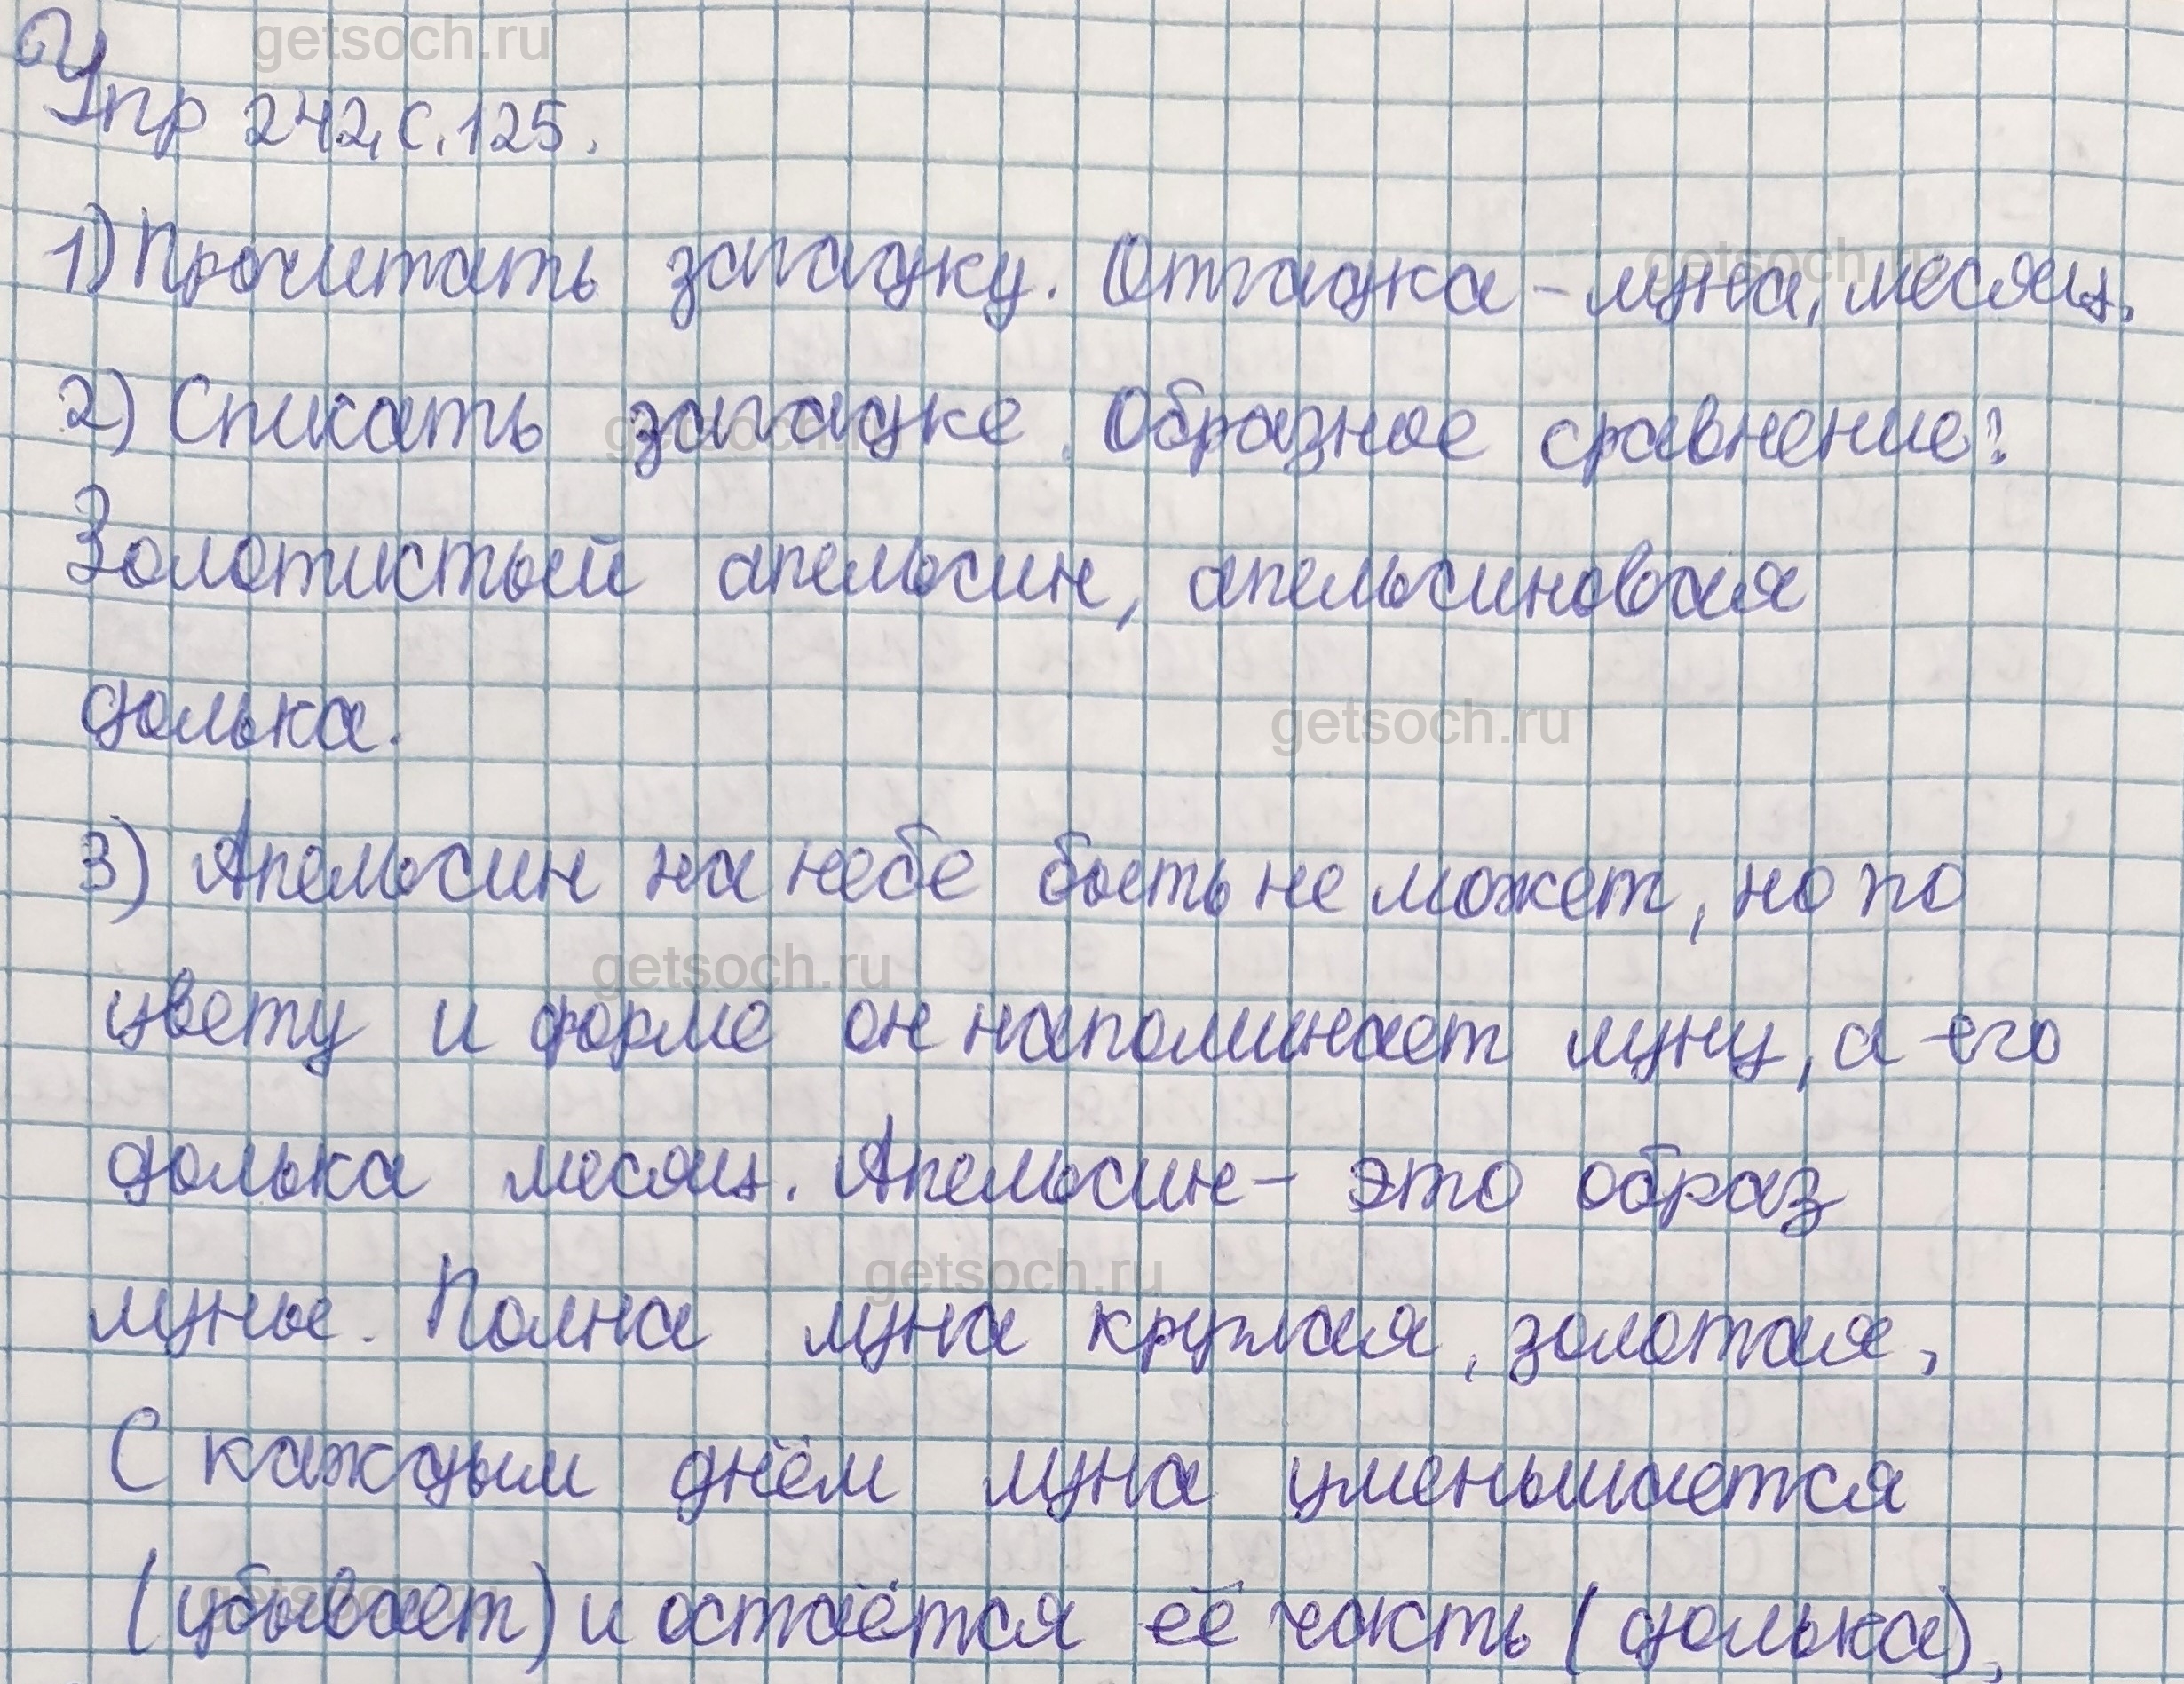 getsoch.ru
Упр 242, с. 125.
1) Прочитать загадку. Отгадка – луна, месяц.
getsoch.ru
2) Списать загадке. Образное сравнение:
getsoch.ru
Золотистый апельсин, апельсиновая
долька.
getsoch.ru
3) Апельсин на небе быть не может, но по
getsoch.ru
цвету и форме он напоминает луну, а его
долька месяц. Апельсин – это образ
getsoch.ru
луны. Полна луна круглая, золотая,
С каждым днём луна уменьшается
getsoch.ru
(убывает) и остаётся её часть (долька),